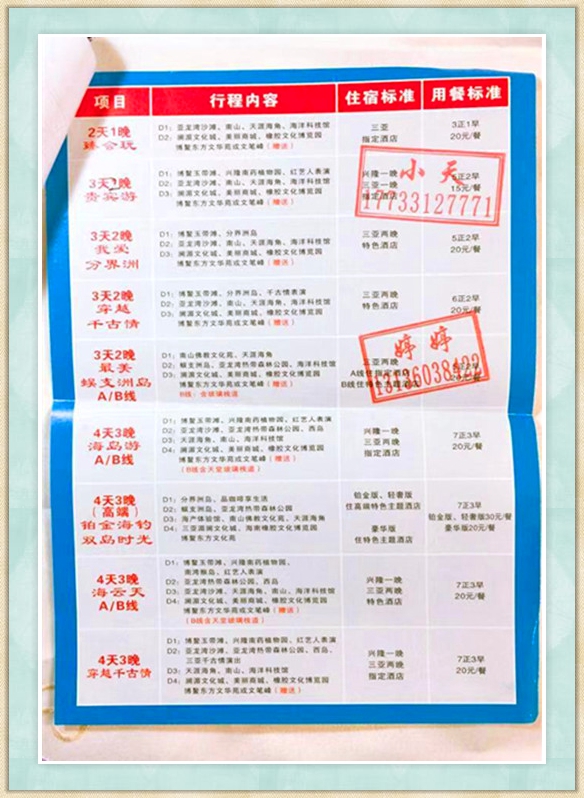 项目 行程内容 住宿标准 用餐标准
2天1晚
臻会玩
D1：亚龙湾沙滩、南山、天涯海角、海洋科技馆
D2：澜源文化城、美丽商城、橡胶文化博览园
博鳌东方文华苑或文笔峰（赠送）
三亚
指定酒店
3正1早
20元/餐
3天2晚
贵宾游
D1：博鳌玉带滩、兴隆南药植物园、红艺人表演
D2：亚龙湾沙滩、南山、天涯海角、海洋科技馆
D3：澜源文化城、美丽商城、橡胶文化博览园
博鳌东方文华苑或文笔峰（赠送）
兴隆一晚
三亚一晚
指定酒店
5正2早
15元/餐
小天
17733127771
3天2晚
我爱
分界洲
D1：博鳌玉带滩、分界洲岛
D2：亚龙湾沙滩、南山、天涯海角、海洋科技馆
D3：澜源文化城、美丽商城、橡胶文化博览园
博鳌东方文华苑或文笔峰（赠送）
三亚两晚
特色酒店
5正2早
20元/餐
3天2晚
穿越
千古情
D1：博鳌玉带滩、分界洲岛、千古情表演
D2：亚龙湾沙滩、南山、天涯海角、海洋科技馆
D3：澜源文化城、美丽商城、橡胶文化博览园
博鳌东方文华苑或文笔峰（赠送）
三亚两晚
特色酒店
6正2早
20元/餐
3天2晚
最美
蜈支洲岛
A/B线
D1：南山佛教文化苑、天涯海角
D2：蜈支洲岛、亚龙湾热带森林公园、海洋科技馆
D3：澜源文化城、美丽商城、橡胶文化博览园
博鳌东方文华苑或文笔峰（赠送）
B线：含玻璃栈道
三亚两晚
A线住指定酒店
B线住特色主题酒店
20元/餐
婷婷
4天3晚
海岛游
A/B线
D1：博鳌玉带滩、兴隆南药植物园、红艺人表演
D2：蜈支洲岛、亚龙湾热带森林公园
D3：天涯海角、南山、海洋科技馆
D4：澜源文化城、美丽商城、橡胶文化博览园
博鳌东方文华苑或文笔峰（赠送）
（B线含天堂玻璃栈道）
兴隆一晚
三亚两晚
指定酒店
7正3早
20元/餐
4天3晚
（高端）
铂金海钓
双岛时光
D1：分界洲岛、品咖啡享生活
D2：蜈支洲岛、亚龙湾热带森林公园
D3：海产体验馆、南山佛教文化苑、天涯海角
D4：三亚澜源文化城、海南橡胶文化博览园
博鳌东方文化苑
铂金版、轻奢版
住高端特色主题酒店
豪华版
住特色主题酒店
7正3早
铂金版、轻奢版30元/餐
豪华版20元/餐
4天3晚
海云天
A/B线
D1：博鳌玉带滩、兴隆南药植物园、
南湾猴岛、红艺人表演
D2：亚龙湾热带森林公园、西岛
D3：亚龙湾沙滩、天涯海角、南山、海洋科技馆
D4：澜源文化城、美丽商城、橡胶文化博览园
博鳌东方文华苑或文笔峰（赠送）
（B线含天堂玻璃栈道）
兴隆一晚
三亚两晚
特色酒店
7正3早
20元/餐
4天3晚
穿越千古情
D1：博鳌玉带滩、兴隆南药植物园、红艺人表演
D2：亚龙湾沙滩、亚龙湾热带森林公园、西岛、
三亚千古情演出
D3：天涯海角、南山、海洋科技馆
D4：澜源文化城、美丽商城、橡胶文化博览园
博鳌东方文华苑或文笔峰（赠送）
兴隆一晚
三亚两晚
指定酒店
7正3早
20元/餐